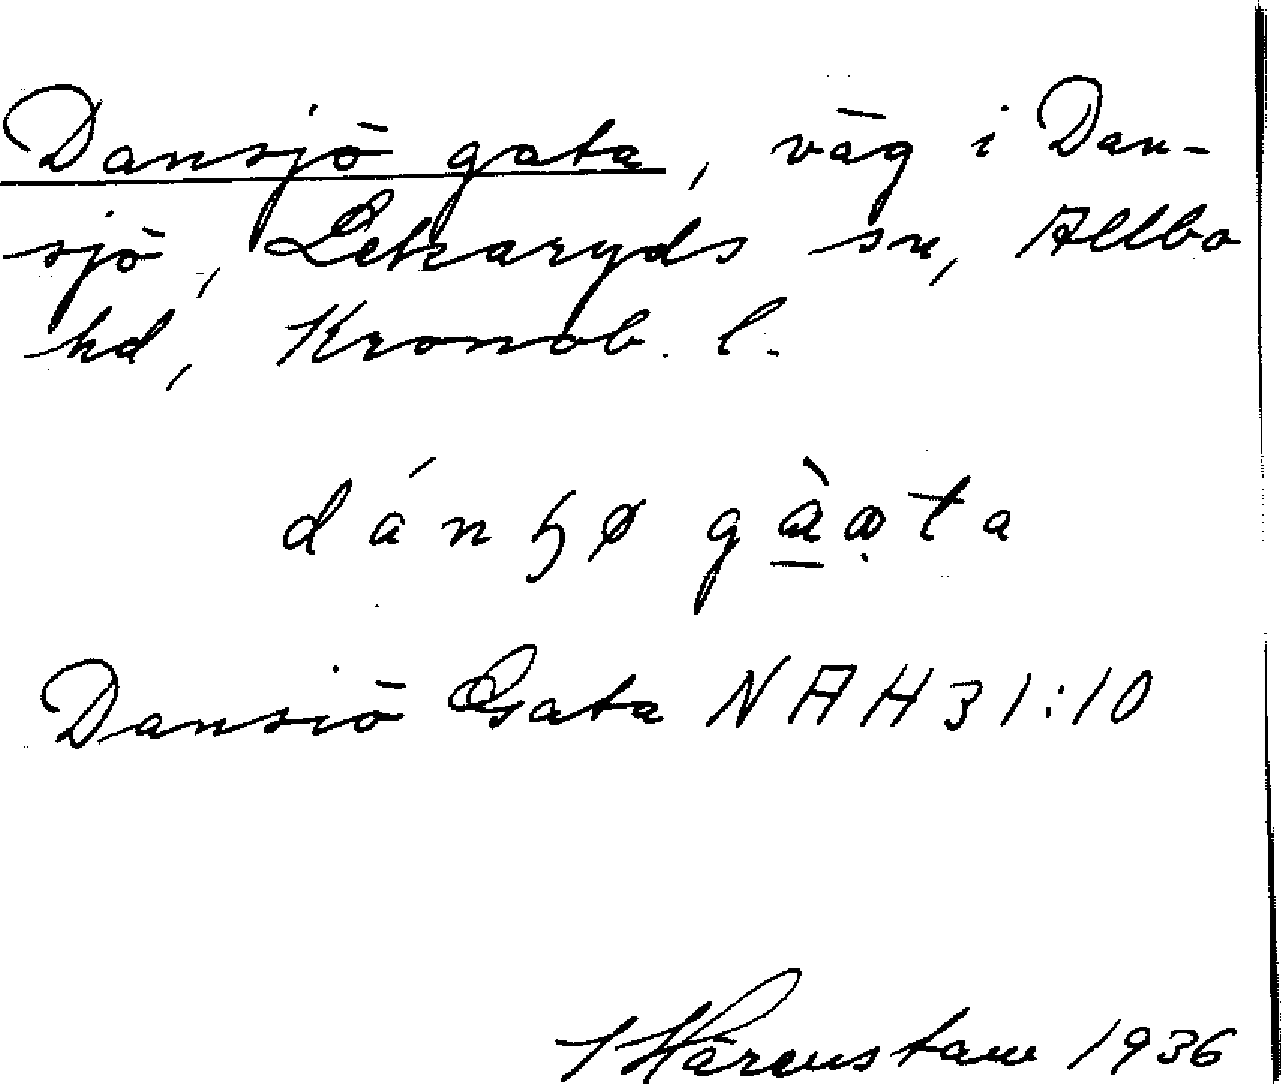 Dansjö gata, väg i Dan-
sjö, Lekaryds sn, Allbo
hd, Kronob. l.
dánɧø gàɑ̣ta
Dansiö Gata NAH31:10
Härenstam 1936